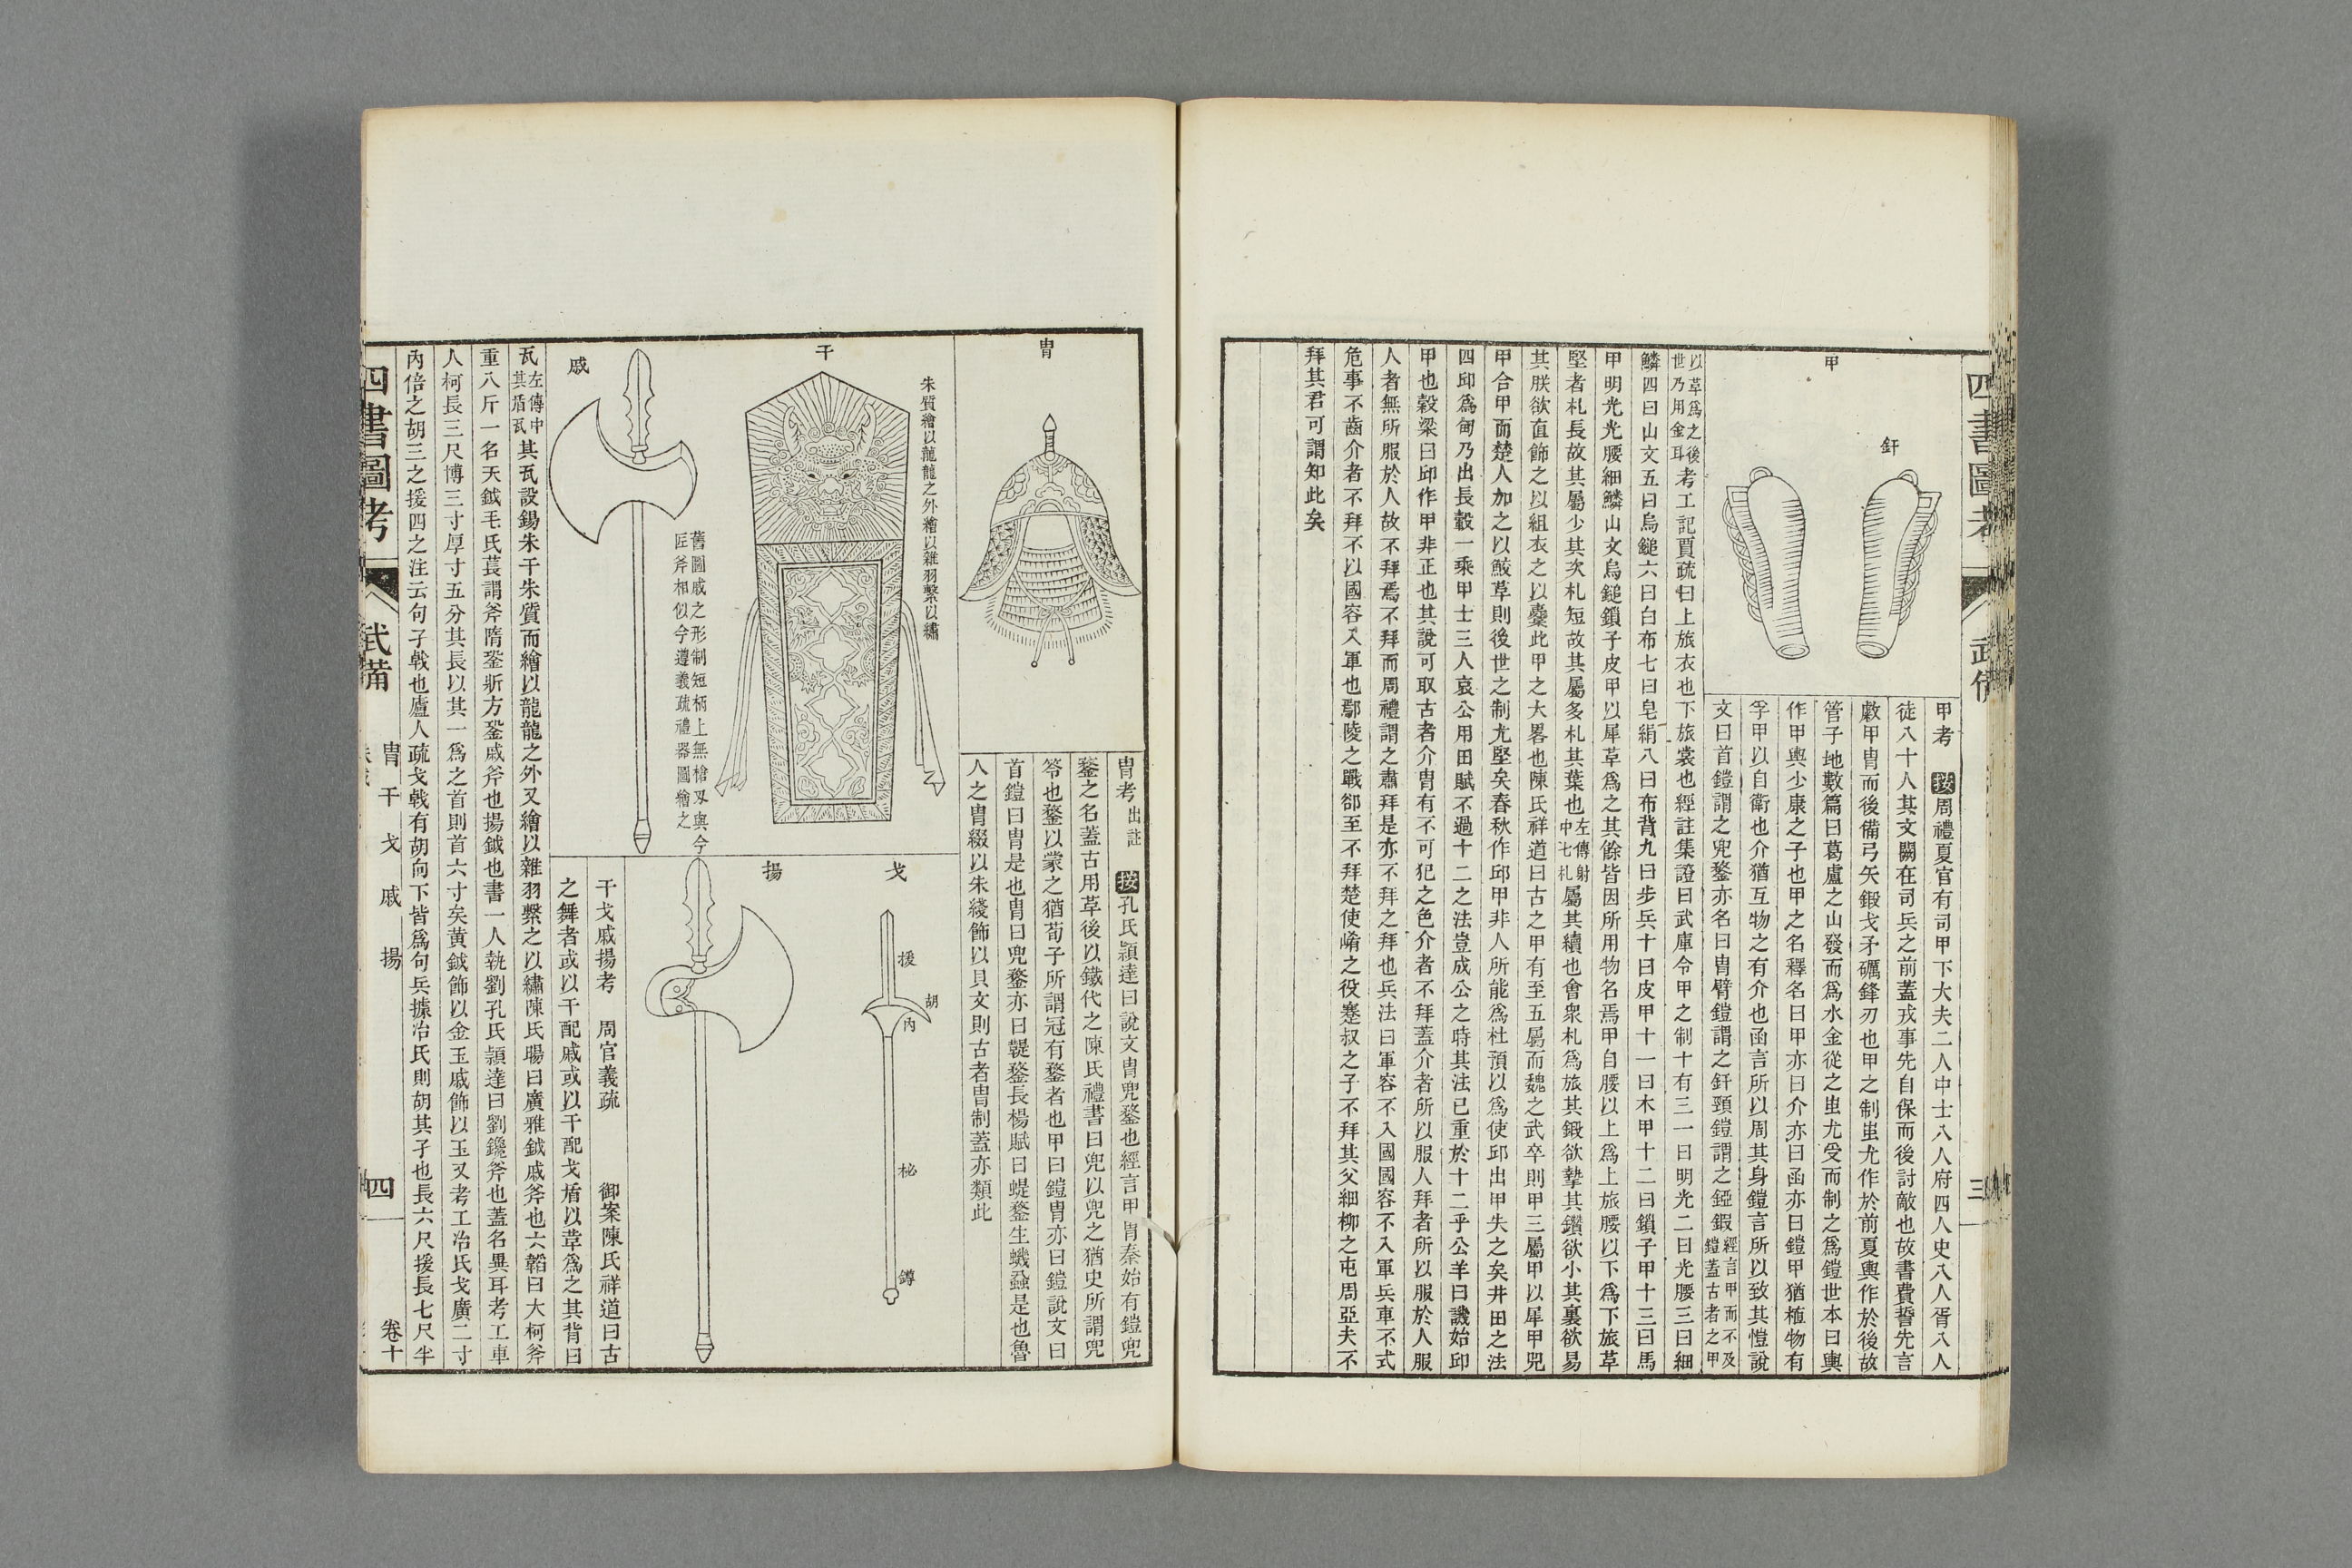 四書圖考
武備
三
甲
釬
甲考 按周禮夏官有司甲下大夫二人中士八人府四人史八人胥八人
徒八十人其文闕在司兵之前蓋戎事先自保而後討敵也故書費誓先言
敹甲冑而後備弓矢鍛戈矛礪鋒刃也甲之制蚩尤作於前夏輿作於後故
管子地數篇曰葛盧之山發而爲水金從之蚩尤受而制之爲鎧世本曰輿
作甲輿少康之子也甲之名釋名曰甲亦曰介亦曰函亦曰鎧甲猶植物有
孚甲以自衛也介猶互物之有介也函言所以周其身鎧言所以致其愷說
文曰首鎧謂之兜鍪亦名曰冑臂鎧謂之釬頸鎧謂之錏鍜經言甲而不及鎧蓋古者之甲
以革爲之後世乃用金耳考工記賈疏曰上旅衣也下旅裳也經註集證曰武庫令甲之制十有三一曰明光二曰光腰三曰細
鱗四曰山文五曰烏鎚六曰白布七曰皂絹八曰布背九曰步兵十曰皮甲十一曰木甲十二曰鎖子甲十三曰馬
甲明光光腰細鱗山文烏鎚鎖子皮甲以犀革爲之其餘皆因所用物名焉甲自腰以上爲上旅腰以下爲下旅革
堅者札長故其屬少其次札短故其屬多札其葉也左傳射中七札屬其續也會衆札爲旅其鍛欲摯其鑽欲小其裏欲易
其朕欲直飾之以組衣之以櫜此甲之大畧也陳氏祥道曰古之甲有至五屬而魏之武卒則甲三屬甲以犀甲兕
甲合甲而楚人加之以鮫革則後世之制尤堅矣春秋作邱甲非人所能爲杜預以爲使邱出甲失之矣井田之法
四邱爲甸乃出長轂一乘甲士三人哀公用田賦不過十二之法豈成公之時其法已重於十二乎公羊曰譏始邱
甲也穀梁曰邱作甲非正也其說可取古者介冑有不可犯之色介者不拜蓋介者所以服人拜者所以服於人服
人者無所服於人故不拜焉不拜而周禮謂之肅拜是亦不拜之拜也兵法曰軍容不入國國容不入軍兵車不式
危事不齒介者不拜不以國容入軍也鄢陵之戰郤至不拜楚使崤之役蹇叔之子不拜其父細柳之屯周亞夫不
拜其君可謂知此矣
冑
冑考 出註 按孔氏穎達曰說文冑兜鍪也經言甲冑秦始有鎧兜
鍪之名蓋古用革後以鐵代之陳氏禮書曰兜以兜之猶史所謂兜
笭也鍪以蒙之猶荀子所謂冠有鍪者也甲曰鎧冑亦曰鎧說文曰
首鎧曰冑是也冑曰兜鍪亦曰鞮鍪長楊賦曰鞮鍪生蟣蝨是也魯
人之冑綴以朱綫飾以貝文則古者冑制蓋亦類此
干
朱質繪以龍龍之外繪以雜羽繫以繡
戚
舊圖戚之形制短柄上無槍刃與今
匠斧相似今遵義疏禮器圖繪之
戈
援
胡
內
柲
鐏
揚
干戈戚揚考 周官義疏 御案陳氏祥道曰古
之舞者或以干配戚或以干配戈盾以革爲之其背曰
瓦左傳中其盾瓦其瓦設錫朱干朱質而繪以龍龍之外又繪以雜羽繫之以繡陳氏暘曰廣雅鉞戚斧也六韜曰大柯斧
重八斤一名天鉞毛氏萇謂斧隋銎斨方銎戚斧也揚鉞也書一人執劉孔氏穎達曰劉鑱斧也蓋名異耳考工車
人柯長三尺博三寸厚寸五分其長以其一爲之首則首六寸矣黄鉞飾以金玉戚飾以玉又考工冶氏戈廣二寸
內倍之胡三之援四之注云句孑戟也廬人疏戈戟有胡向下皆爲句兵據冶氏則胡其孑也長六尺援長七尺半
四書圖考
武備
冑 干 戈 戚 揚
四
卷十